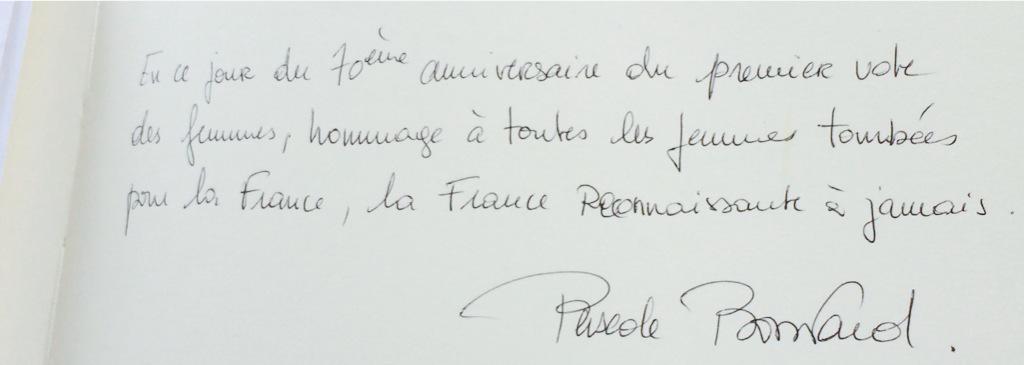 En ce jour du 70ème anniversaire du premier vote
des femmes, hommage à toutes les femmes tombées
pour la France, la France Reconnaissante à jamais.
Pascale